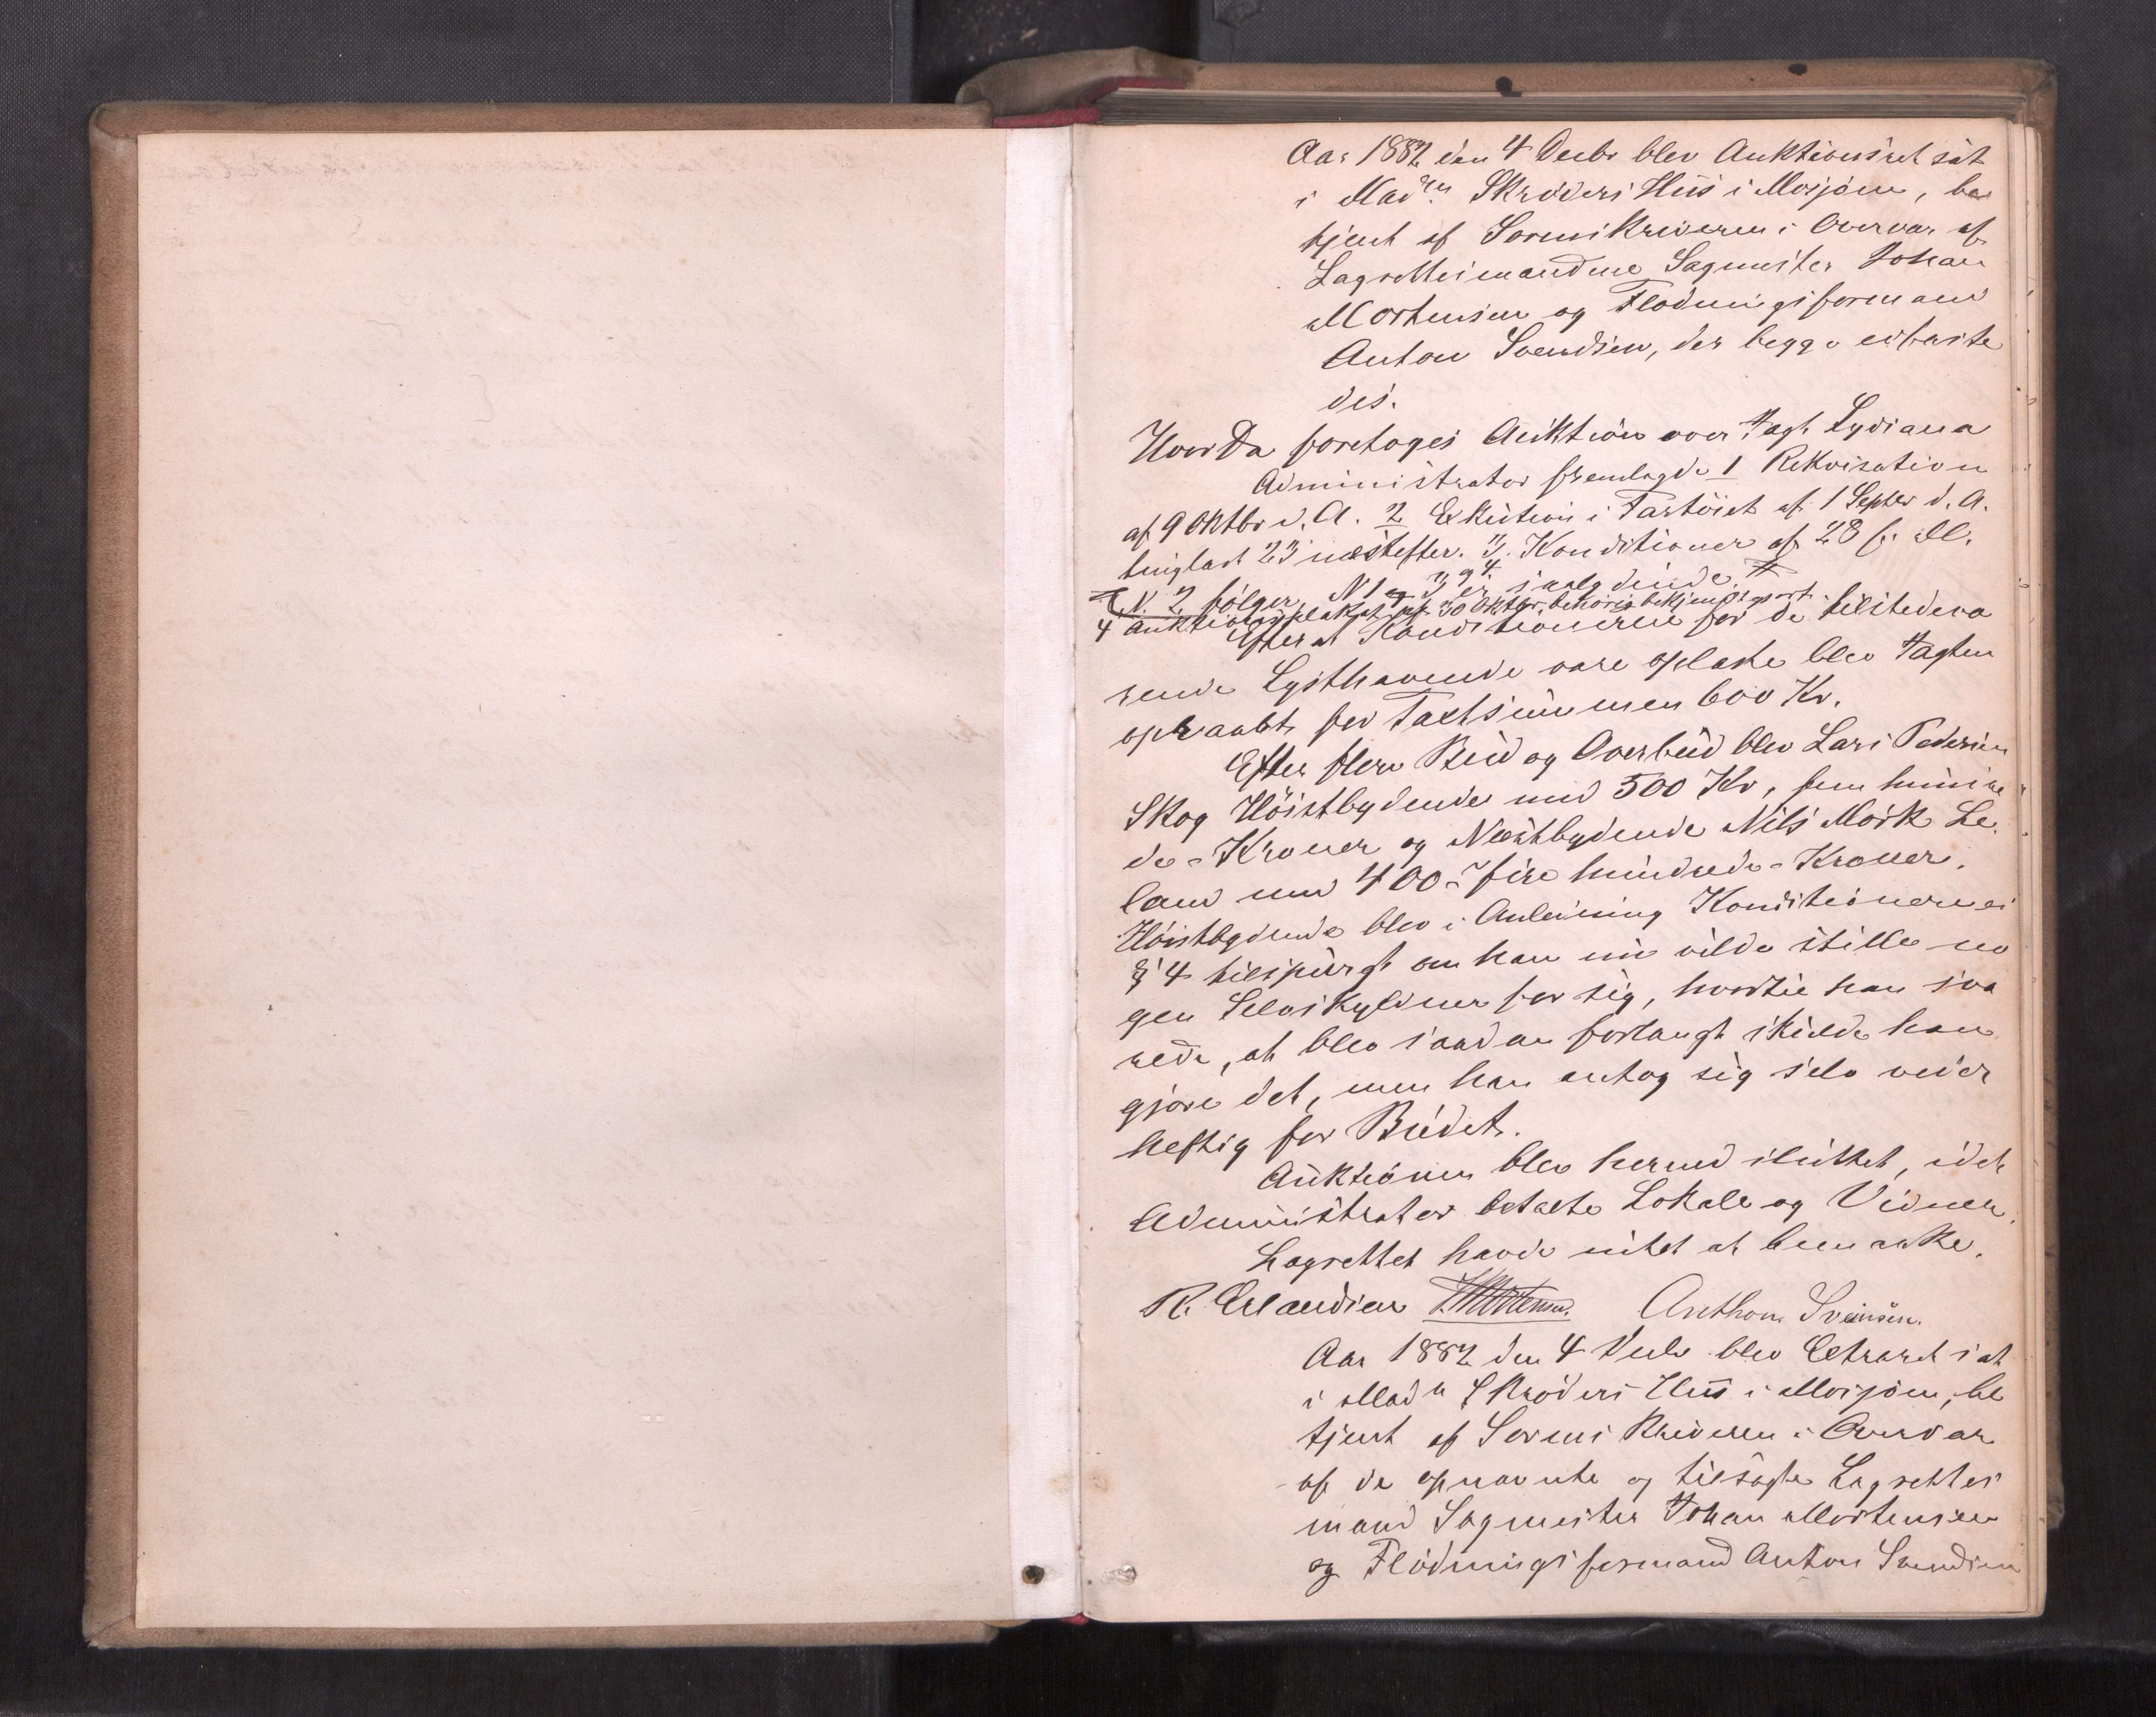 Aar 1882 den 4 Decbr blev Auktionsret sat
i Madm Skrøders Hus i Mosjøen, be
tjent af Sorenskriveren i Overvær af
Lagrettesmændene Sagmester Johan
Mortensen og Flødningsformand
Anton Svendsen, der begge edfæste
des.
Hvorda foretoges Auktion over Jagt Lydiana
Administrator fremlagde 1 Rekvisition
af 9 Oktbr d. A. 2 Exkution i Fartøiet af 1 Septbr d. A.
tinglæst 23 næstefter. 3, Konditioner af 28 f. M.
N. 2 følger, N 1, 3 og 4 er ialgdende.
4 Auktionsplakat af 30 Oktbr, behørig bekjendtgjort.
Efter at Konditionerne for de tilstedevæ
rende Lysthavende vare oplæste blev Jagten
opraabt for Taxtsummen 600 Kr.
Efter flere Bud og Overbud blev Lars Pedersen
Skog Høistbydende med 500 Kr, fem hundre
de - Kroner og Næstbydende Nils Mørk Le
land med 400 - fire hundrede - Kroner.
Høistbydende blev i Anledning Konditionernes
§ 4 tilspurgt om han nu vilde stille no
gen Selvskyldner for sig, hvortil han sva
rede, at blev saadan forlangt skulde han
gjøre det, men han antog sig selv veder
heftig for Budet.
Auktionen blev hermed sluttet, idet
Administrator betalte Lokale og Vidner.
Lagrettet havde intet at bemærke.
R. Erlandsen J. Mortensen. Anthon Svensen.
Aar 1882 den 4 Decbr blev Extraret sat
i Madm Skrøders Hus i Mosjøen, be
tjent af Sorenskriveren i Overvær
af de opnævnte og tilsagte Lagrettes
mænd Sagmester Johan Mortensen
og Flødningsformand Anton Svendsen